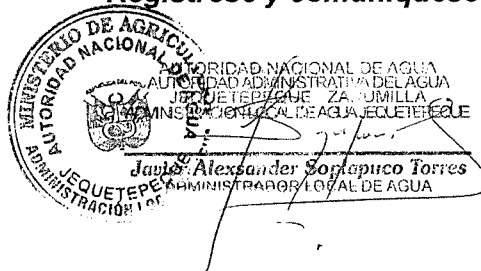 Regístrese y comuníquese
MINISTERIO DE AGRICU
AUTORIDAD NACIONAL DE
AUTORIDAD NACIONAL DE AGUA
AUTORIDAD ADMINISTRATIVA DEL AGUA
JEQUETEPEQUE ZARUMILLA
ADMINISTRACION LOCAL DE AGUA JEQUETEPEQUE
Javier Alexsander Soplapuco Torres
ADMINISTRADOR LOCAL DE AGUA
JEQUETEPE
ADMINISTRACIÓN LOC